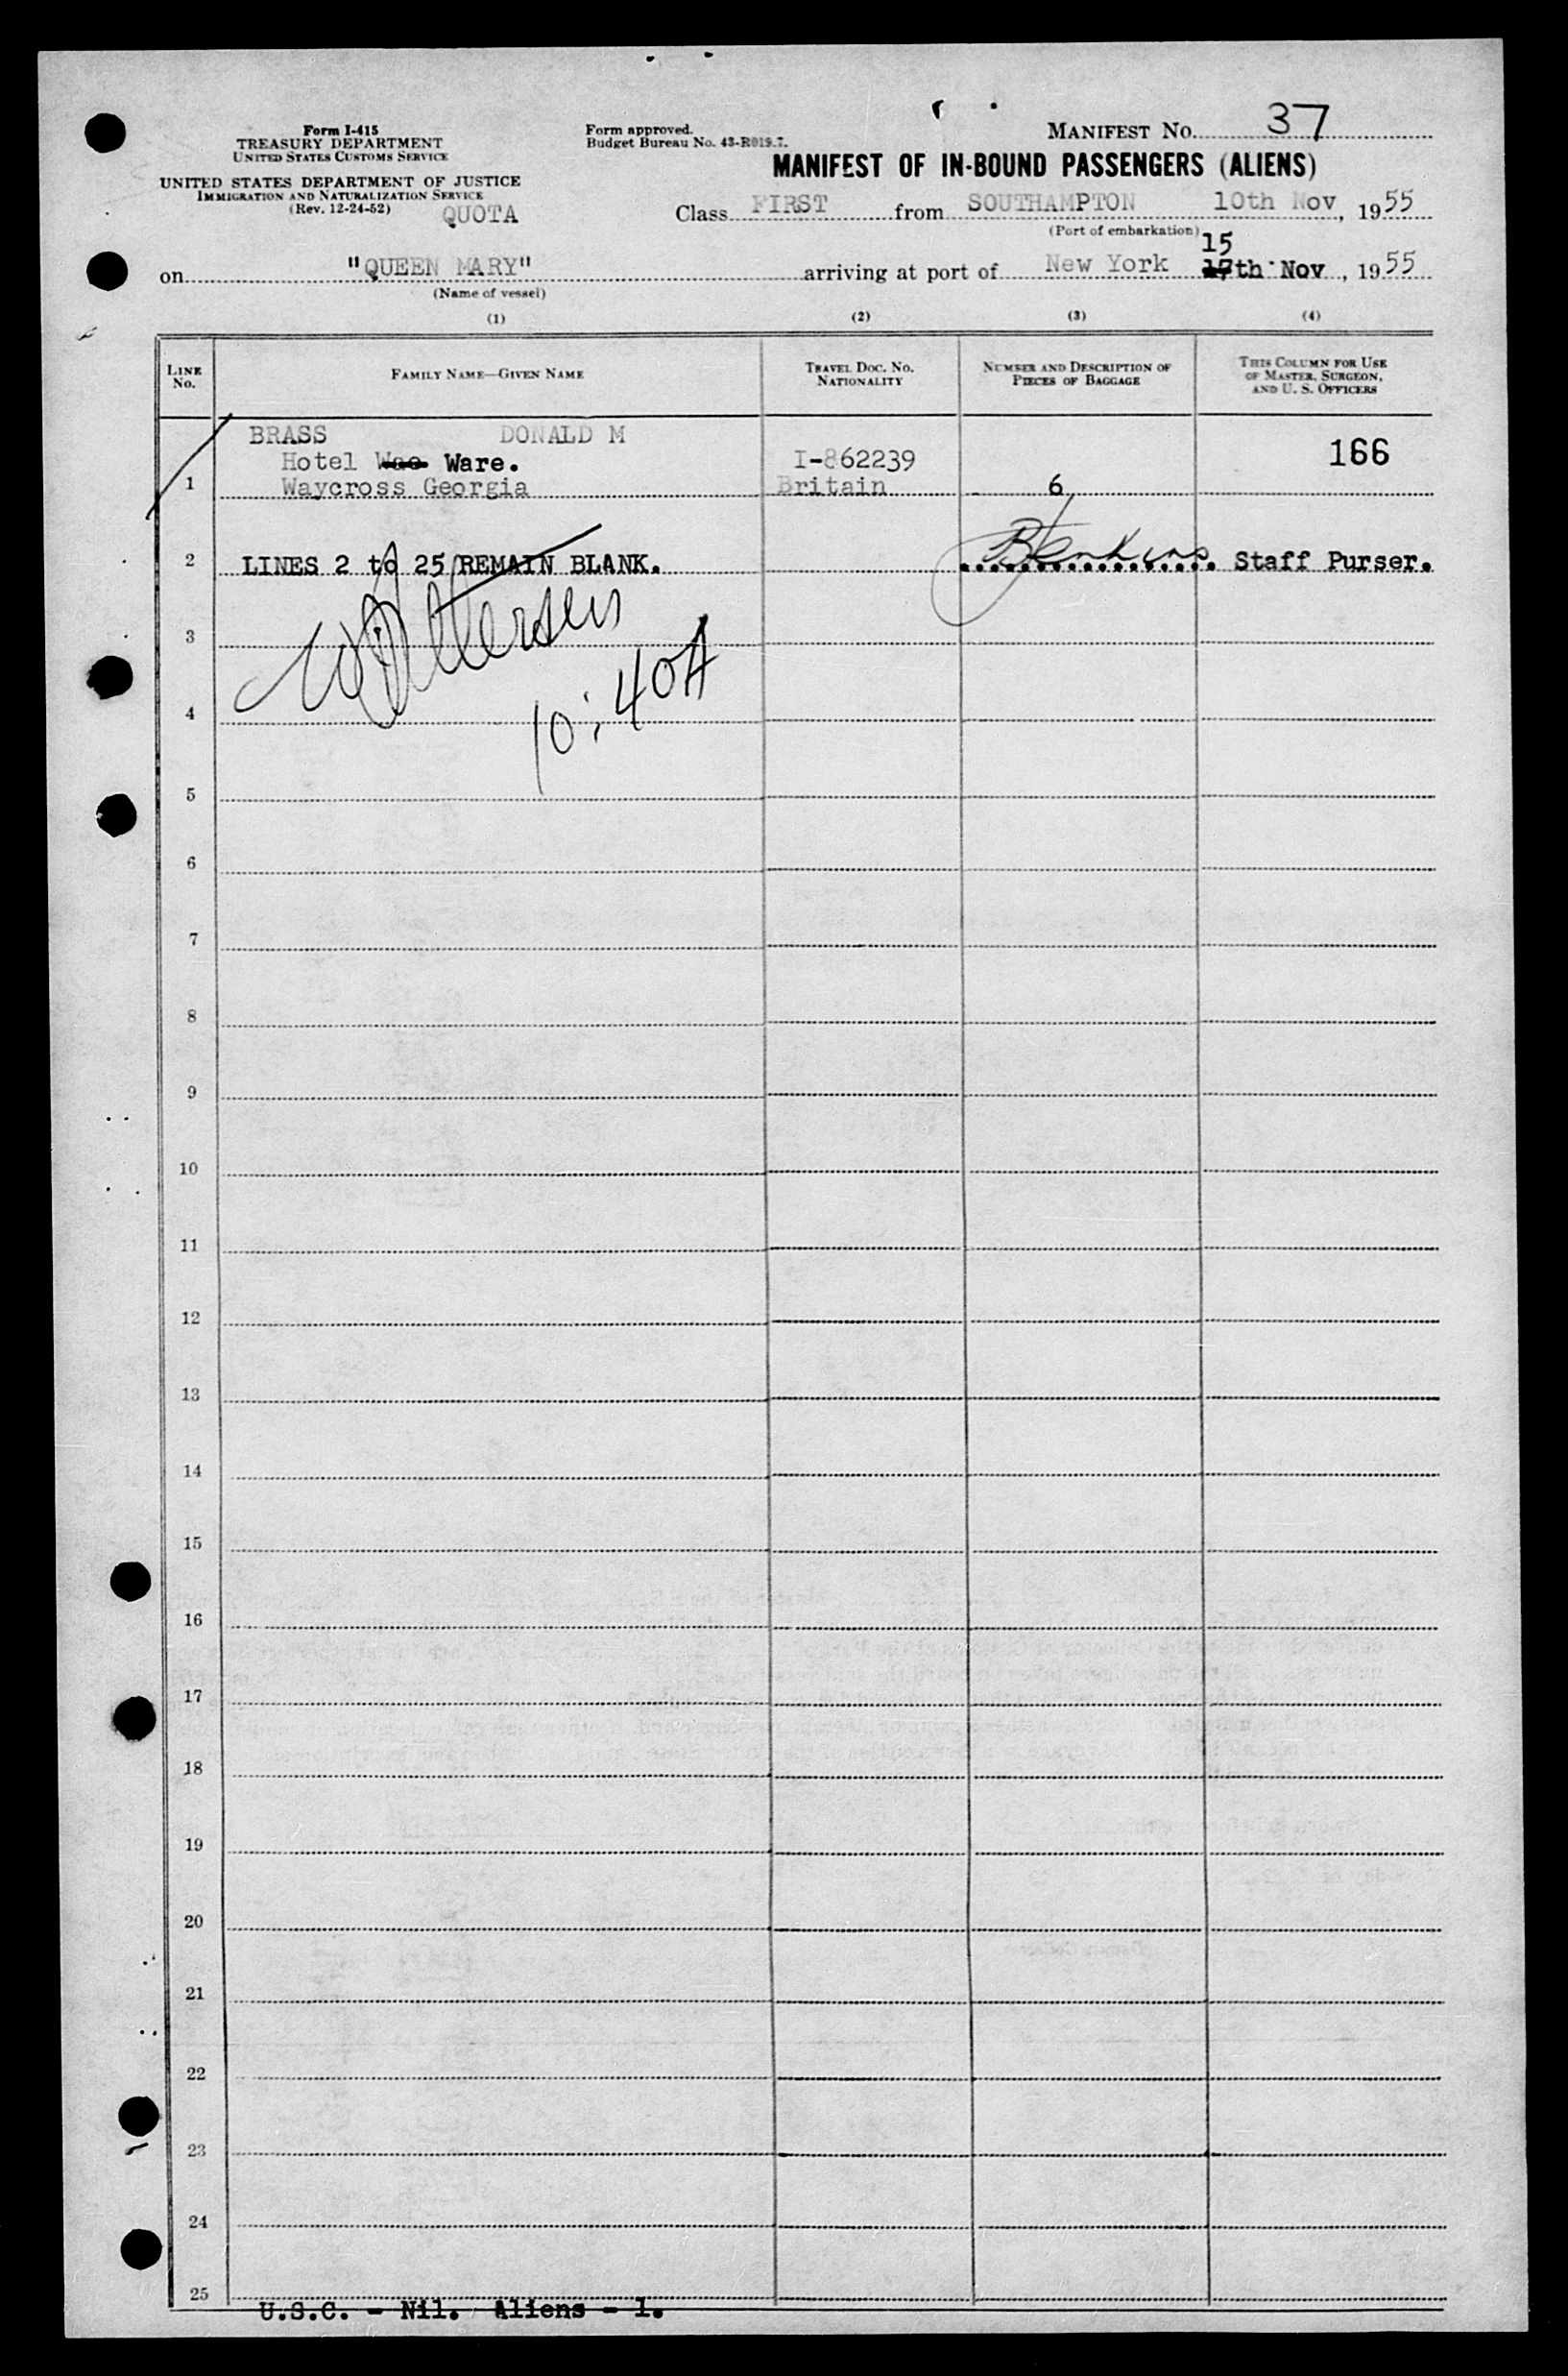 Form I-415
TREASURY DEPARTMENT
UNITED STATES CUSTOMS SERVICE
UNITED STATES DEPARTMENT OF JUSTICE
IMMIGRATION AND NATURALIZATION SERVICE
(Rev. 12-24-52)
QUOTA
Form approved.
Budget Bureau No. 43-R019.7.
MANIFEST No. 37
MANIFEST OF IN-BOUND PASSENGERS (ALIENS)
Class FIRST from SOUTHAMPTON 10th Nov, 1955
(Port of embarkation)
15
on "QUEEN MARY" arriving at port of New York 17th Nov, 1955
(Name of vessel)
(1) (2) (3) (4)
LINE No.
FAMILY NAME—GIVEN NAME
TRAVEL DOC. No. NATIONALITY
NUMBER AND DESCRIPTION OF PIECES OF BAGGAGE
THIS COLUMN FOR USE OF MASTER, SURGEON, AND U. S. OFFICERS
BRASS DONALD M
Hotel Ware. I-862239 166
1 Waycross Georgia Britain 6
2 LINES 2 to 25 REMAIN BLANK. Staff Purser.
3
10:40A
4
5
6
7
8
9
10
11
12
13
14
15
16
17
18
19
20
21
22
23
24
25
U.S.C. - Nil. Aliens - 1.